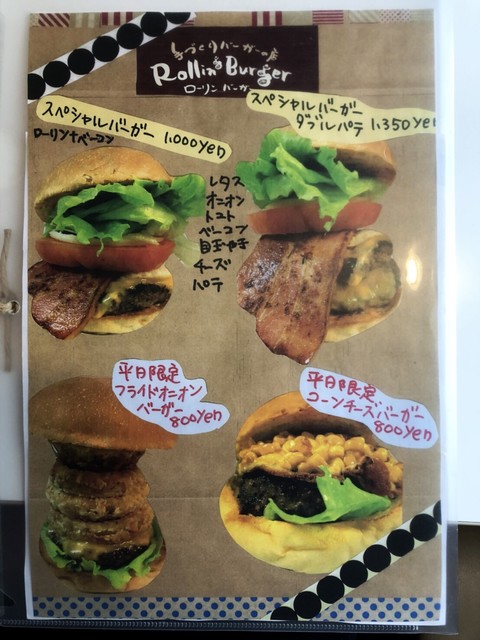 手づくりバーガーの店
Rollin Burger
ローリン バーガー
スペシャルバーガー 1.000yen
ローリン+ベーコン
スペシャルバーガー
ダブルパテ 1.350yen
レタス
オニオン
トマト
ベーコン
目玉やき
チーズ
パテ
平日限定
フライドオニオン
バーガー
800yen
平日限定
コーンチーズバーガー
800yen